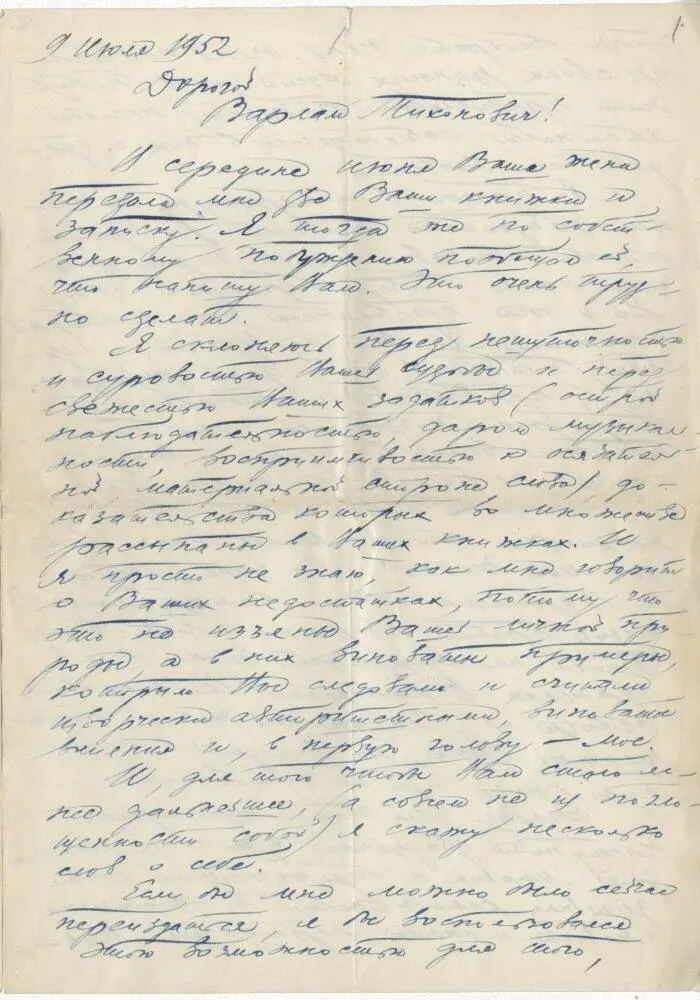 9 июля 1952
Дорогой
Варлам Тихонович!
В середине июня Ваша жена
передала мне две Ваши книжки и
записку. Я тогда же по собст-
венному побуждению пообещал ей,
что напишу Вам. Это очень труд-
но сделать.
Я склоняюсь перед нешуточностью
и суровостью Вашей судьбы и перед
свежестью Ваших задатков (острой
наблюдательностью, даром музыкаль-
ности, восприимчивостью к осязатель-
ной, материальной стороне слова), до-
казательства которых во множестве
рассыпаны в Ваших книжках. И
я просто не знаю, как мне говорить
о Ваших недостатках, потому что
это не изъяны Вашей личной при
роды, а в них виноваты примеры,
которым Вы следовали и считали
творчески авторитетными, виноваты
влияния и, в первую голову — мое.
И, для того чтобы Вам стало яс-
нее дальнейшее, (а совсем не из погло-
щенности собой) я скажу несколько
слов о себе.
Если бы мне можно было сейчас
переиздаться, я бы воспользовался
этою возможностью для того,